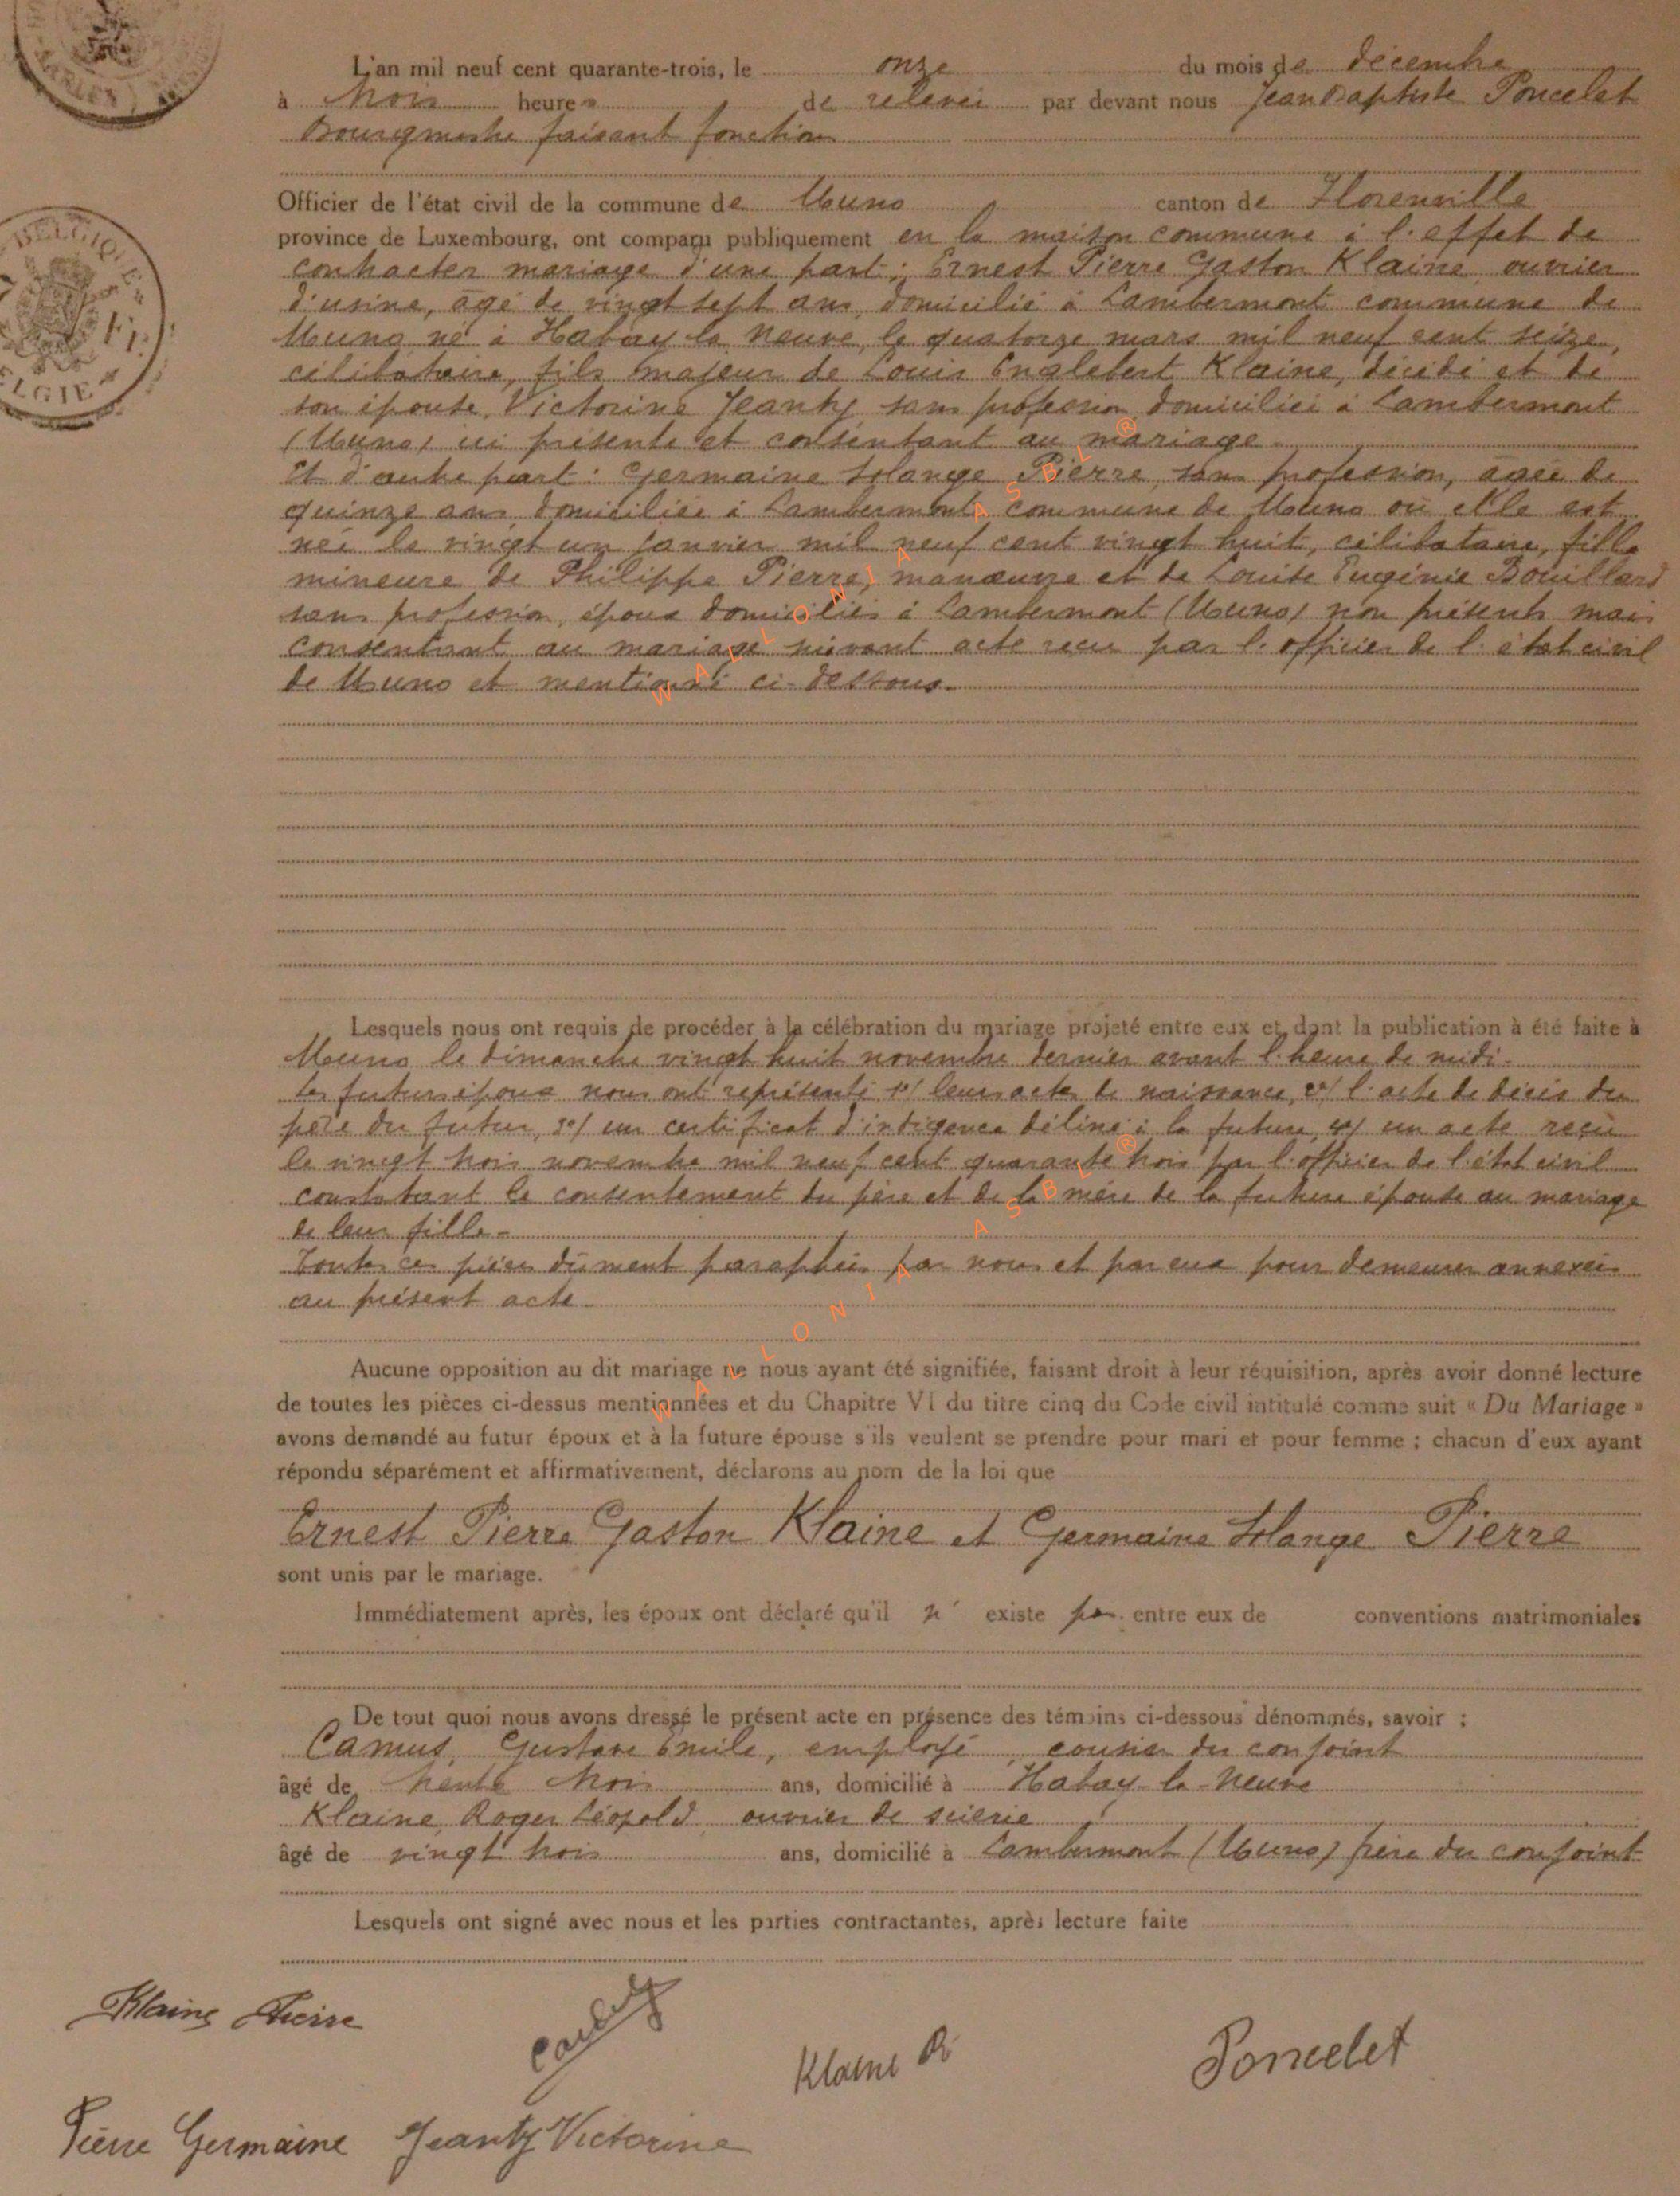 L'an mil neuf cent quarante-trois, le onze du mois de décembre
à trois heures de relevée par devant nous Jean Baptiste Poncelet
Bourgmestre faisant fonction
Officier de l'état civil de la commune de Muno canton de Florenville
province de Luxembourg, ont comparu publiquement en la maison commune à l'effet de
contracter mariage d'une part : Ernest Pierre Gaston Klaine, ouvrier
d'usine, âgé de vingt sept ans, domicilié à Lambermont commune de
Muno né à Habay la Neuve, le quatorze mars mil neuf cent seize,
célibataire, fils majeur de Louis Englebert Klaine, décédé et de
son épouse, Victorine Jeanty sans profession domiciliée à Lambermont
(Muno) ici présente et consentant au mariage.
Et d'autre part : Germaine Solange Pierre, sans profession, âgée de
quinze ans, domiciliée à Lambermont, commune de Muno où elle est
née le vingt un janvier mil neuf cent vingt huit, célibataire, fille
mineure de Philippe Pierre, manœuvre et de Louise Eugénie Bouillard
sans profession, époux domiciliés à Lambermont (Muno) non présents mais
consentant au mariage suivant acte reçu par l'officier de l'état civil
de Muno et mentionné ci-dessous.
Lesquels nous ont requis de procéder à la célébration du mariage projeté entre eux et dont la publication à été faite à
Muno le dimanche vingt huit novembre dernier avant l'heure de midi.
Les futurs époux nous ont représenté 1°/ leurs actes de naissance, 2°/ l'acte de décès du
père du futur, 3°/ un certificat d'indigence délivré à la future, 4°/ un acte reçu
le vingt trois novembre mil neuf cent quarante trois par l'officier de l'état civil
constatant le consentement du père et de la mère de la future épouse au mariage
de leur fille.
Toutes ces pièces dûment paraphées par nous et par eux pour demeurer annexées
au présent acte.
Aucune opposition au dit mariage ne nous ayant été signifiée, faisant droit à leur réquisition, après avoir donné lecture
de toutes les pièces ci-dessus mentionnées et du Chapitre VI du titre cinq du Code civil intitulé comme suit « Du Mariage »
avons demandé au futur époux et à la future épouse s'ils veulent se prendre pour mari et pour femme ; chacun d'eux ayant
répondu séparément et affirmativement, déclarons au nom de la loi que
Ernest Pierre Gaston Klaine et Germaine Solange Pierre
sont unis par le mariage.
Immédiatement après, les époux ont déclaré qu'il n' existe pas entre eux de conventions matrimoniales
De tout quoi nous avons dressé le présent acte en présence des témoins ci-dessous dénommés, savoir :
Camus, Gustave Emile, employé, cousin du conjoint
âgé de trente trois ans, domicilié à Habay-la-Neuve
Klaine Roger Léopold ouvrier de scierie
âgé de vingt trois ans, domicilié à Lambermont (Muno) frère du conjoint
Lesquels ont signé avec nous et les parties contractantes, après lecture faite
Klaine Pierre
Klaine R
Poncelet
Pierre Germaine Jeanty Victorine
BELGIQUE
BELGIE
WALLONIA ASBL ®
WALLONIA ASBL ®